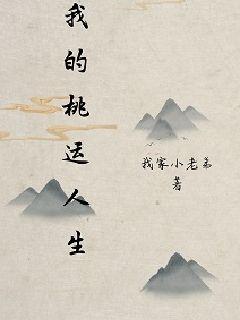 我的桃运人生
我家小老弟
著